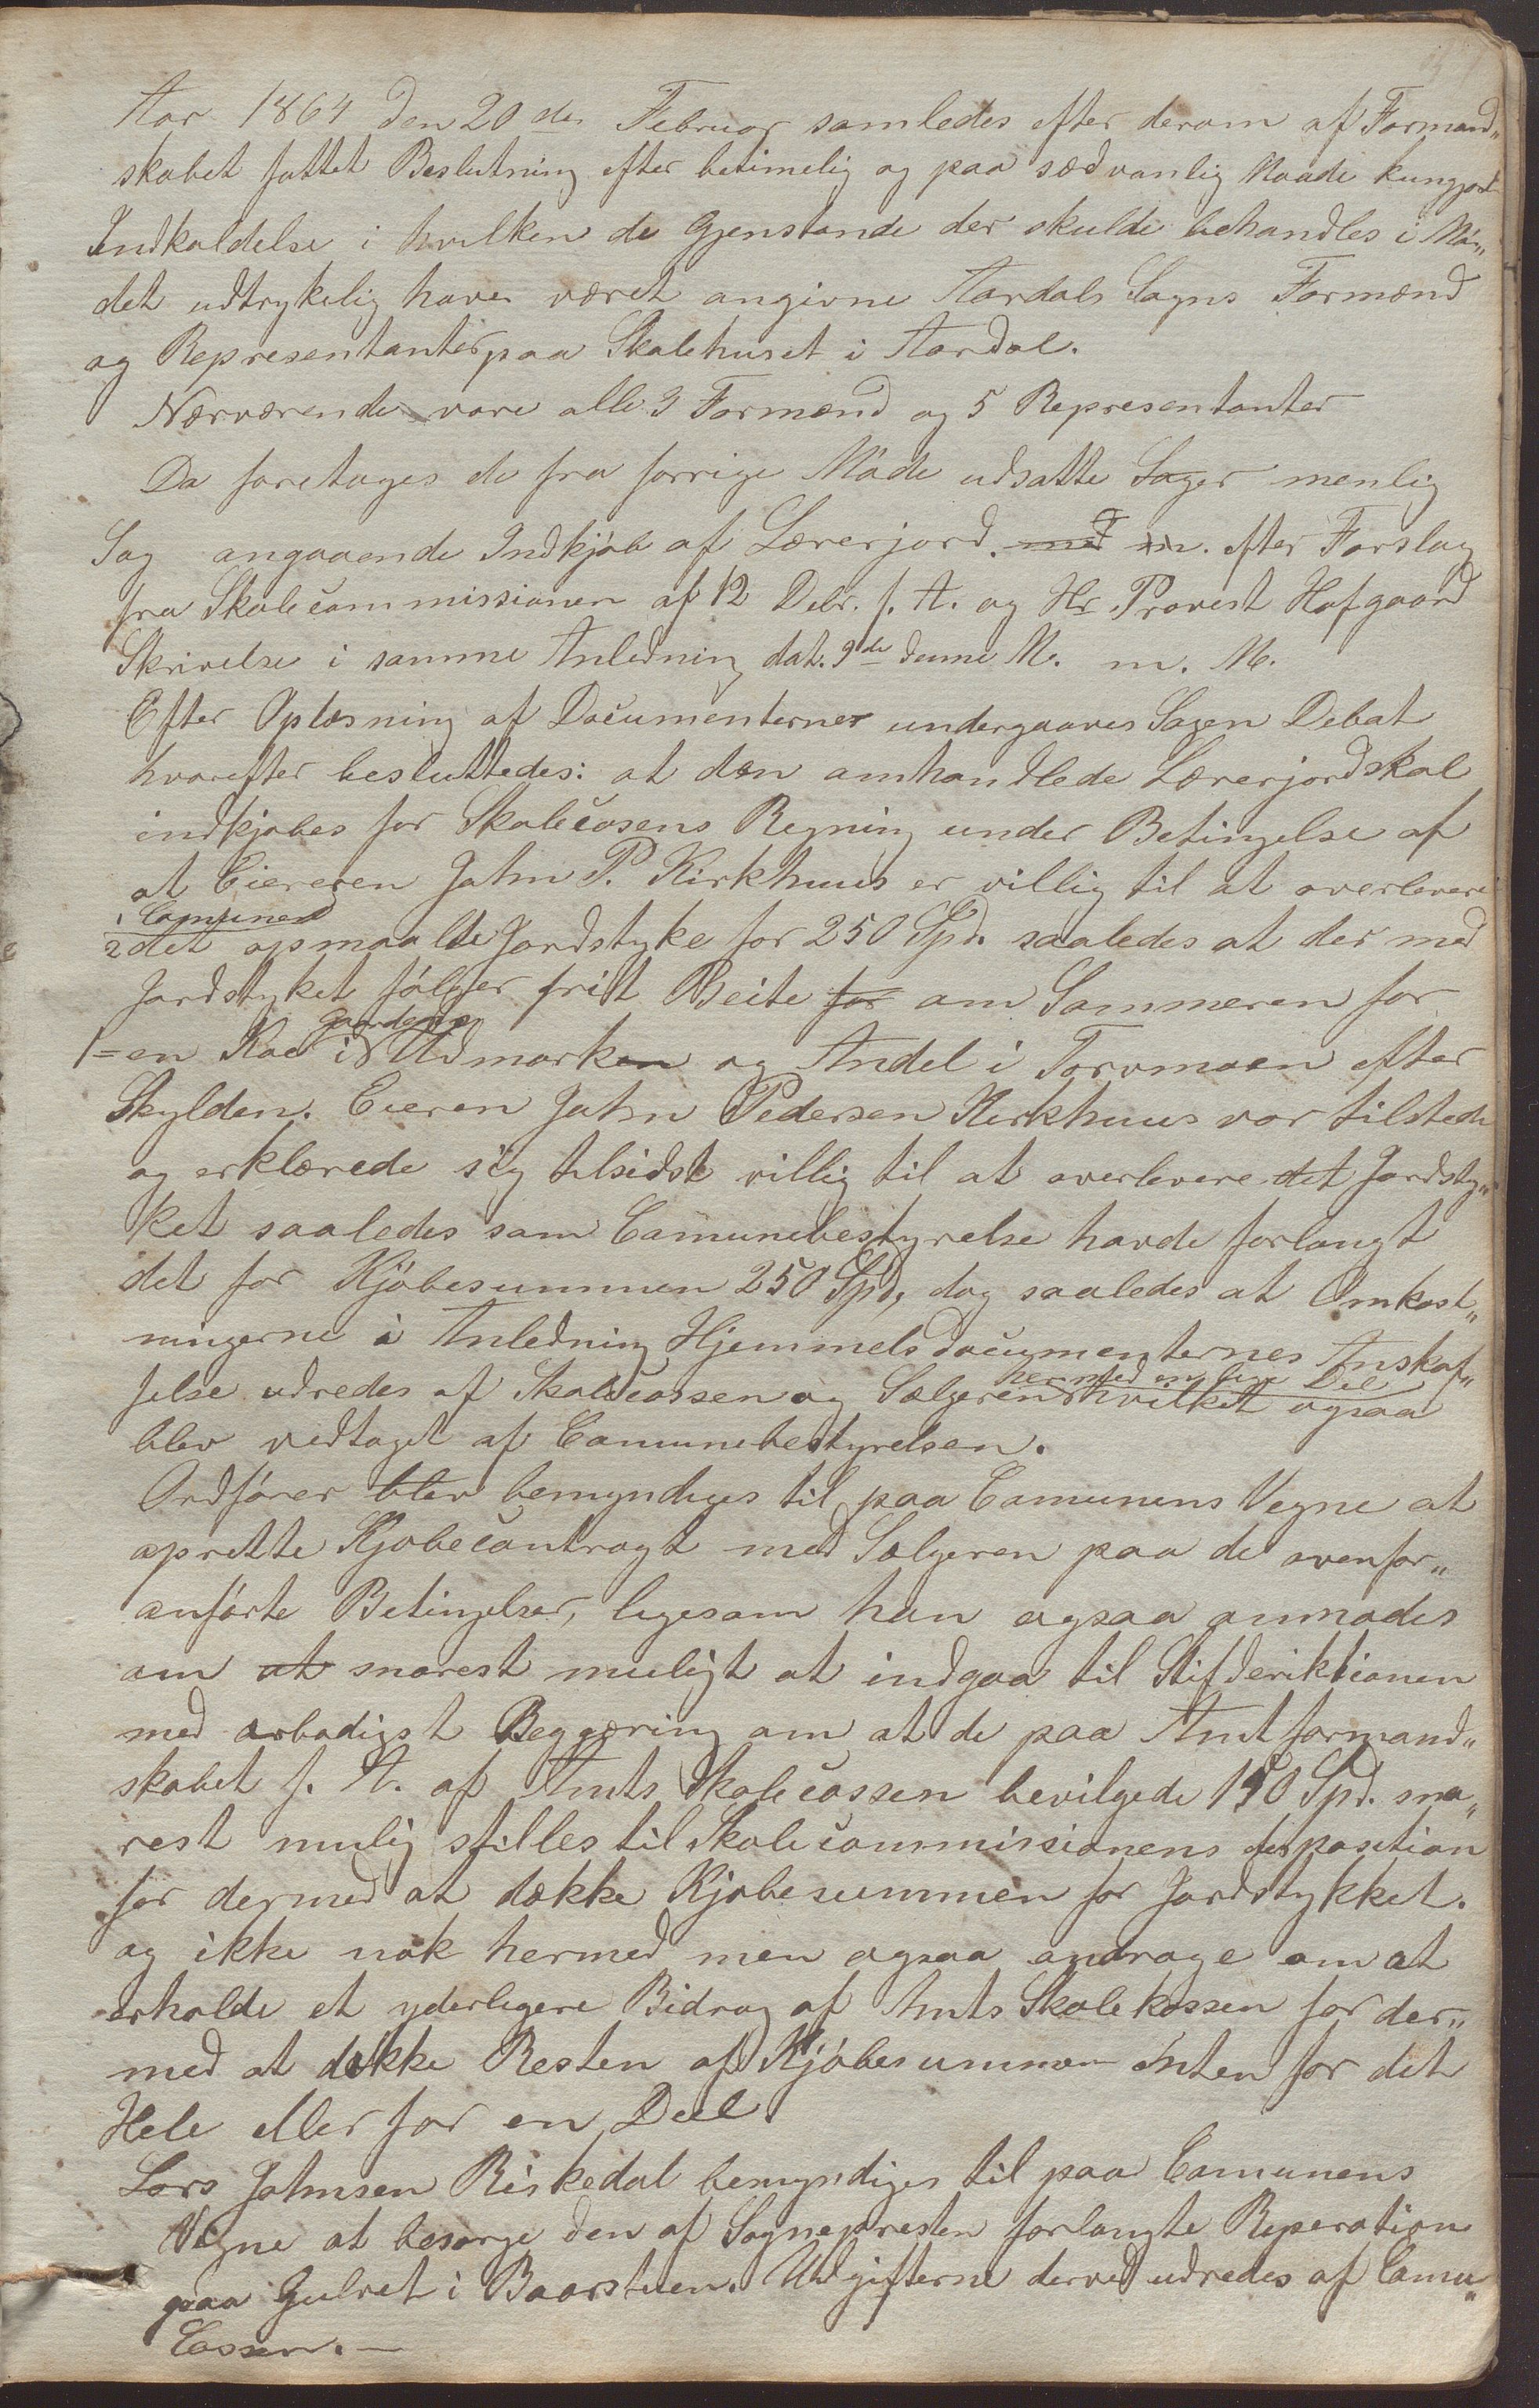 Aar 1864 den 20de Februar samledes efter derom af Formand„
skabet fattet Beslutning efter betimelig og paa sædvanlig Maade kungjort
Indkaldelse i hvilken de Gjenstande der skulde behandles i Mø„
det udtrykelig have været angivne Aardals Sogns Formænd
og Representanter paa Skolehuset i Aardal.
Nærværende vare alle 3 Formænd og 5 Representanter
Da foretoges de fra forrige Møde udsatte Sager nemlig
Sag angaaende Indkjøb af Lærerjord. med m. efter Forslag
fra Skolecommissionen af 12 Debr. f. A. og Hr. Provest Hofgaard
Skrivelse i samme Anledning dat. 9de denne M. m. M.
Efter Oplæsning af Documenterner undergaaves Sagen Debat
hvorefter besluttedes: at den omhandlede Lærerjord skal
indkjøbes for Skolecasens Regning under Betingelse af
at Eiereren John P. Kirkhuus er villig til at overlevere
1 Comunen
2 det opmaalte Jordstyke for 250 Spd. saaledes at der med
Jordstyket følger frit Beite for om Sommeren for
Gaardens
1= en Koe i Udmarken og Andel i Torvmoen efter
Skylden. Eieren John Pedersen Kirkhuus var tilstede
og erklærede sig tilsidst villig til at overlevere det Jordsty„
ket saaledes som Comunebestyrelse havde forlangt
det for Kjøbesummen 250 Spd, dog saaledes at Omkost„
ningerne i Anledning Hjemmelsdocumenternes Anskaf„
hermed en lige Del
felse udredes af Skolecassen og Sælgeren hvilket ogsaa
blev vedtaget af Comunebestyrelsen.
Ordfører blev bemyndiges til paa Comunens Vegne at
oprette Kjøbecontragt med Sælgeren paa de ovenfor„
anførte Betingelser, ligesom han ogsaa anmodes
om at snarest muligt at indgaa til Stifderiktionen
med ærbødigst Beggæring om at de paa Amtformand„
skabet f. A. af Amts Skolecassen bevilgede 150 Spd. sna„
rest mulig stilles til Skolecommissionens disposition
for dermed at dække Kjøbesummen for Jordstykket.
og ikke nok hermed men ogsaa andrage om at
erholde et yderligere Bidrag af Amts Skolekassen for der„
med at dække Resten af Kjøbesummen enten for det
Hele eller for en Deel.
Lars Johnsen Riskedal bemyndiges til paa Comunens
Vegne at besørge den af Sognepresten forlangte Reperation
paa Gulvet i Baarstuen. Udgifterne derved udredes af Comu„
Cassen.—